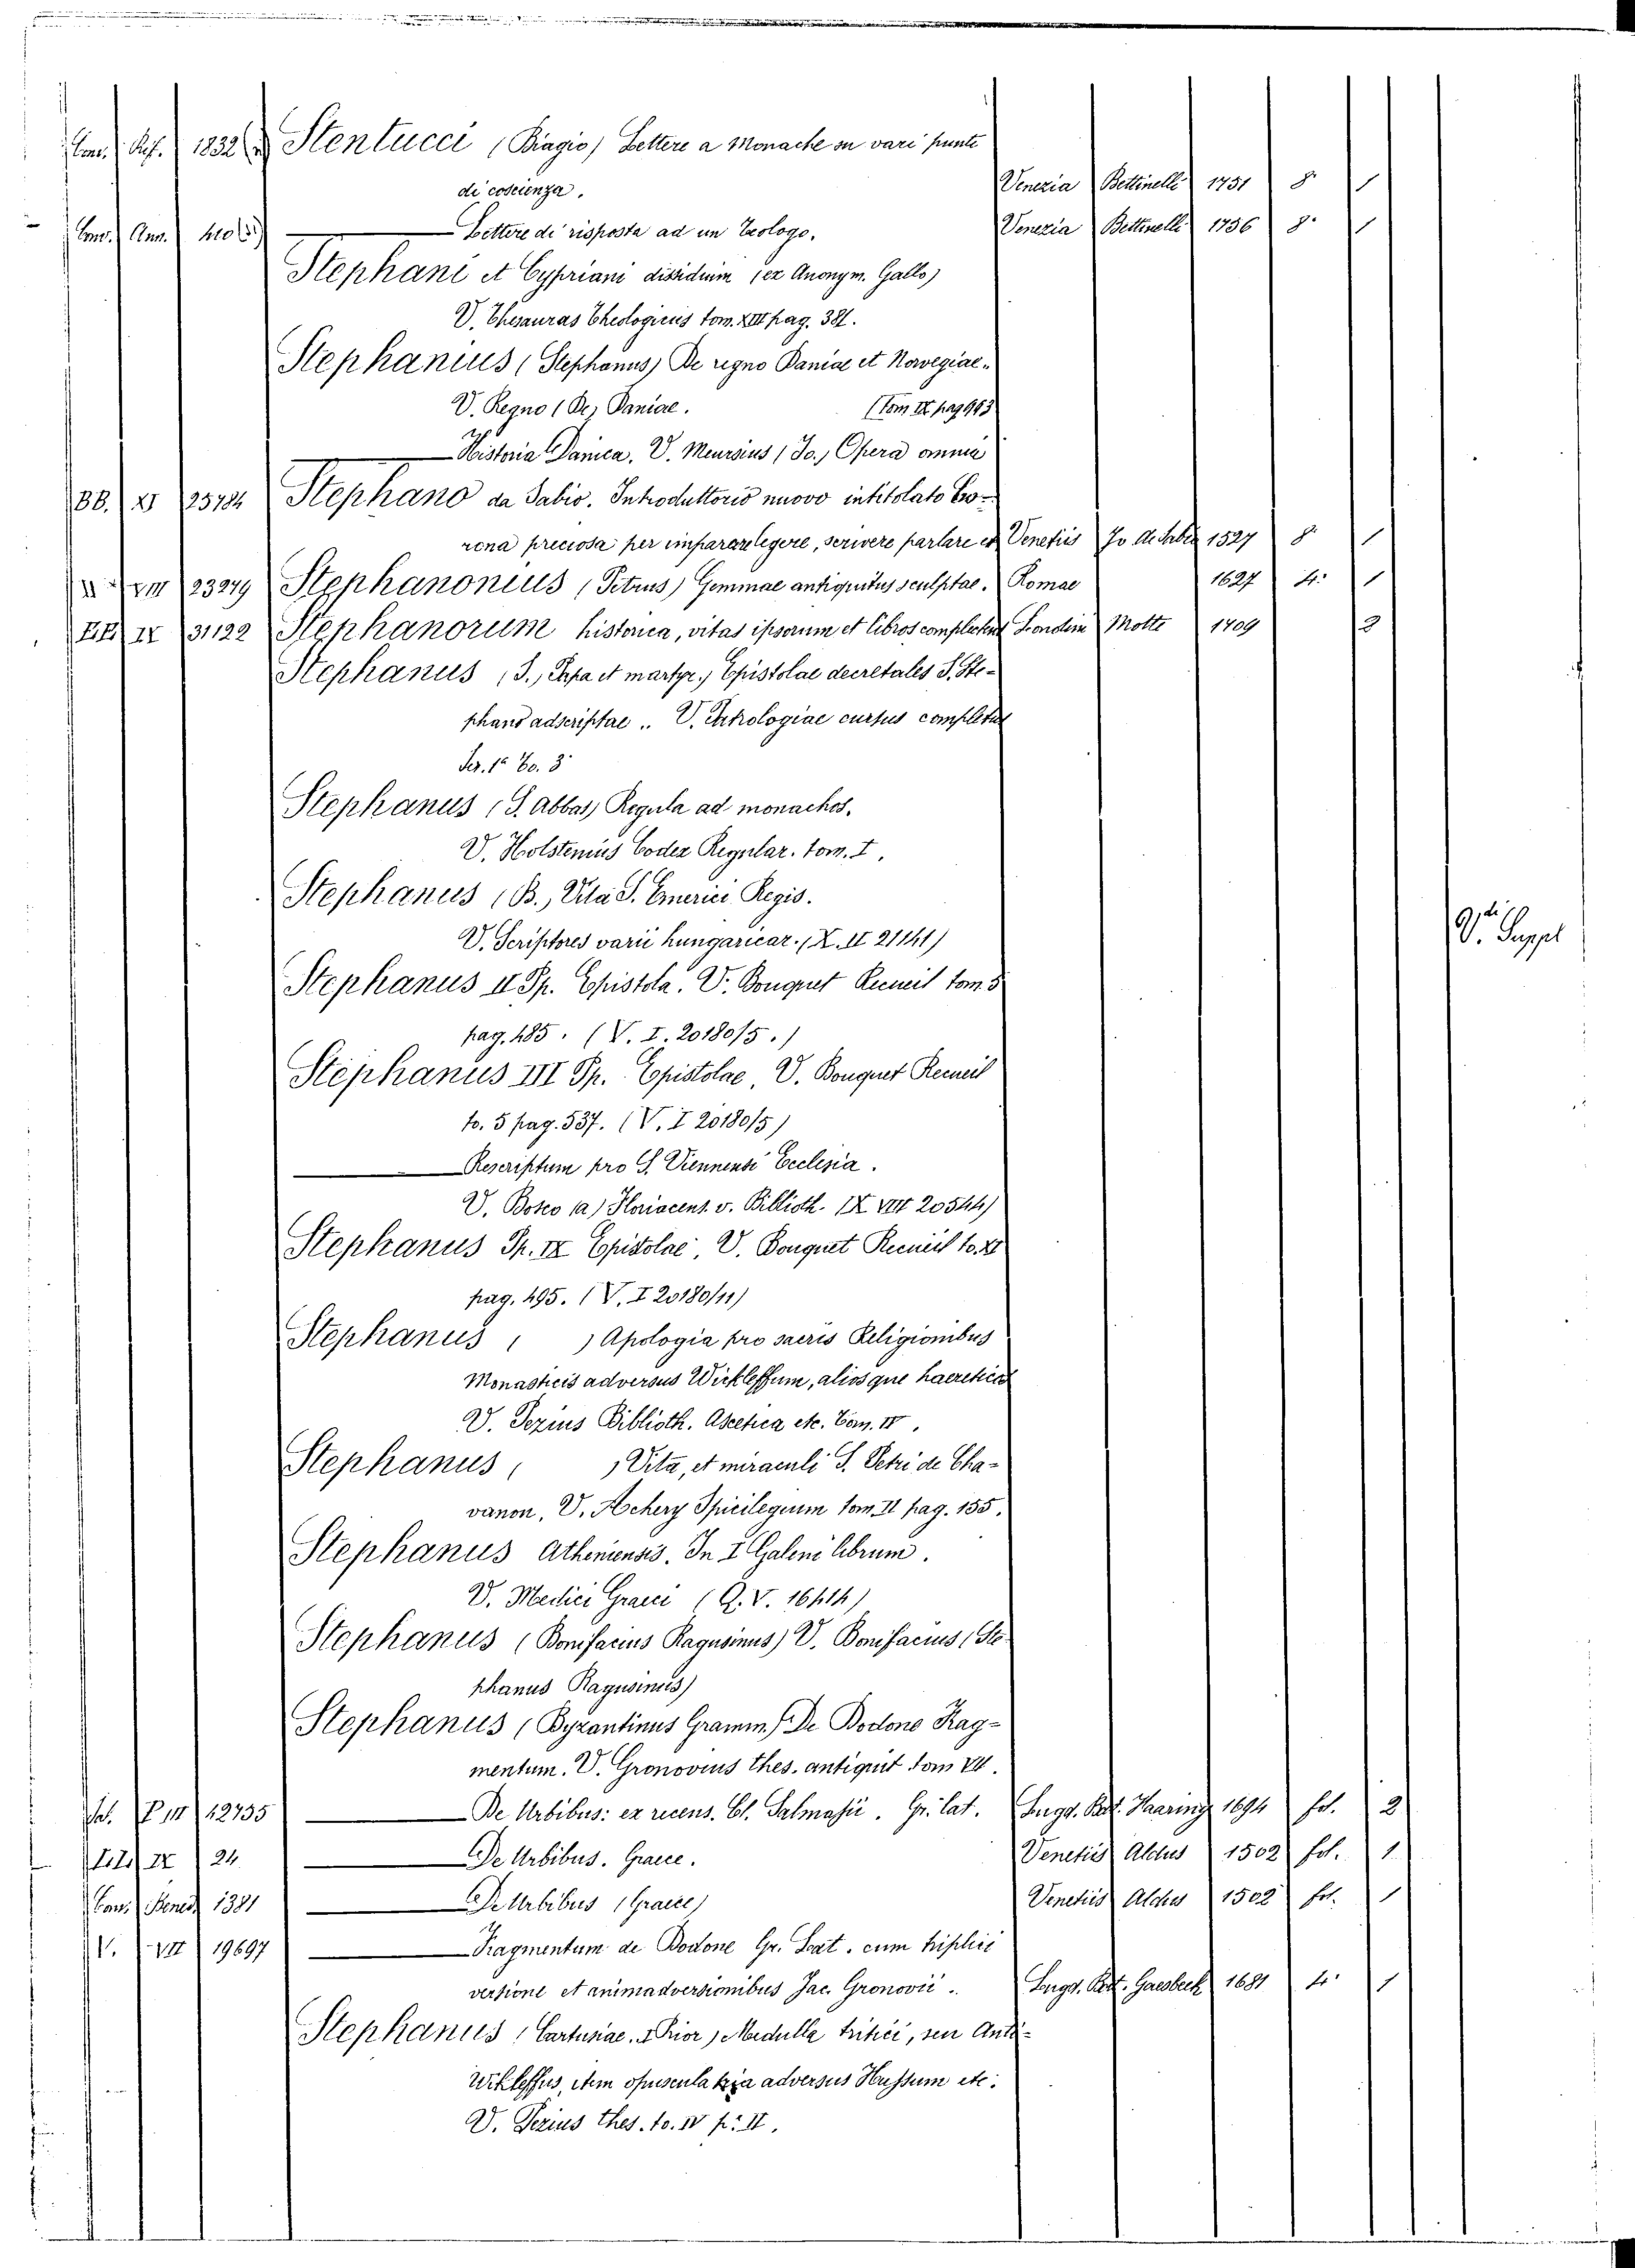 Conv. Ref. 1832 Stentucci (Biagio) Lettere a Monache su vari punti
di coscienza. Venezia Bettinelli 1751 8° 1
Conv. Ann. Lettere di risposta ad un Teologo. Venezia Bettinelli 1756 8° 1
Stephani et Cypriani dissidium (ex Anonym. Gallo)
V. Thesauras Theologicus tom. XIII pag. 381.
Stephanius (Stephanus) De regno Daniae et Norvegiae.
V. Regno (De) Daniae. (Tom IX pag 993
Historia Danica. V. Meursius (Jo.) Opera omnia
BB. XI 25784 Stephano da Sabio. Introduttorio nuovo intitolato Co-
rona preciosa per imparar legere, scrivere parlare et Venetiis Jo 1527 8° 1
VIII 23279 Stephanonius (Petrus) Gemmae antiquitus sculptae. Romae 1627 4° 1
EE IX 31122 Stephanorum historica, vitas ipsorum et libros complectens Londini Motte 1709 2
Stephanus (S., Papa et martyr.) Epistolae decretales S. Ste-
phano adscriptae .. V. Patrologiae cursus completus
Ser. 1ª To. 3°
Stephanus (S. Abbas) Regula ad monachos.
V. Holstenius Codex Regular. tom. I.
Stephanus (B.) Vita S. Emerici Regis.
V. Scriptores varii hungaricar. (X. II 21141) V. Suppl
Stephanus II Pp. Epistola. V. Bouquet Recueil tom. 5
pag. 485. (V. I. 20180/5.)
Stephanus III Pp. Epistolae, V. Bouquet Recueil
to. 5 pag. 537. (V. I 20180/5)
Rescriptum pro S. Viennensi Ecclesia.
V. Bosco (a) Floriacens. v. Biblioth. (X VIII 20544)
Stephanus Pp. IX Epistolae, V. Bouquet Recueil to. XI
pag. 495. (V. I 20180/11)
Stephanus ( ) Apologia pro sacris Religionibus
Monasticis adversus Wickleffum, aliosque haereticos
V. Pezius Biblioth. Ascetica etc. Tom. IV.
Stephanus ( ) Vita, et miraculi S. Petri de Cha-
vanon, V. Achery Spicilegium tom. II pag. 155.
Stephanus Atheniensis. In I Galeni librum.
V. Medici Graeci (Q. V. 16414)
Stephanus (Bonifacius Ragusinus) V. Bonifacius (Ste
phanus Ragusinus)
Stephanus (Byzantinus Gramm.) De Dodone Frag-
mentum. V. Gronovius thes. antiquit tom VII.
P III 12735 De Urbibus: ex recens. Cl. Salmasii. Gr. lat. Lugd. Bat. Haaring 1694 fol. 2
IX 24 De Urbibus. Graece. Venetiis Aldus 1502 fol. 1
Conv. Bened 1381 De Urbibus (Graece) Venetiis Aldus 1502 fol. 1
V. VII 19697 Fragmentum de Dodone Gr. Lat. cum triplici
versione et animadversionibus Jac. Gronovii. Lugd. Bat. Gaesbeek 1681 4° 1
Stephanus (Cartusiae, Prior) Medulla tritici, seu Anti-
Wikleffus, item opuscula tria adversus Hussum etc.
V. Pezius thes. to. IV p. II.